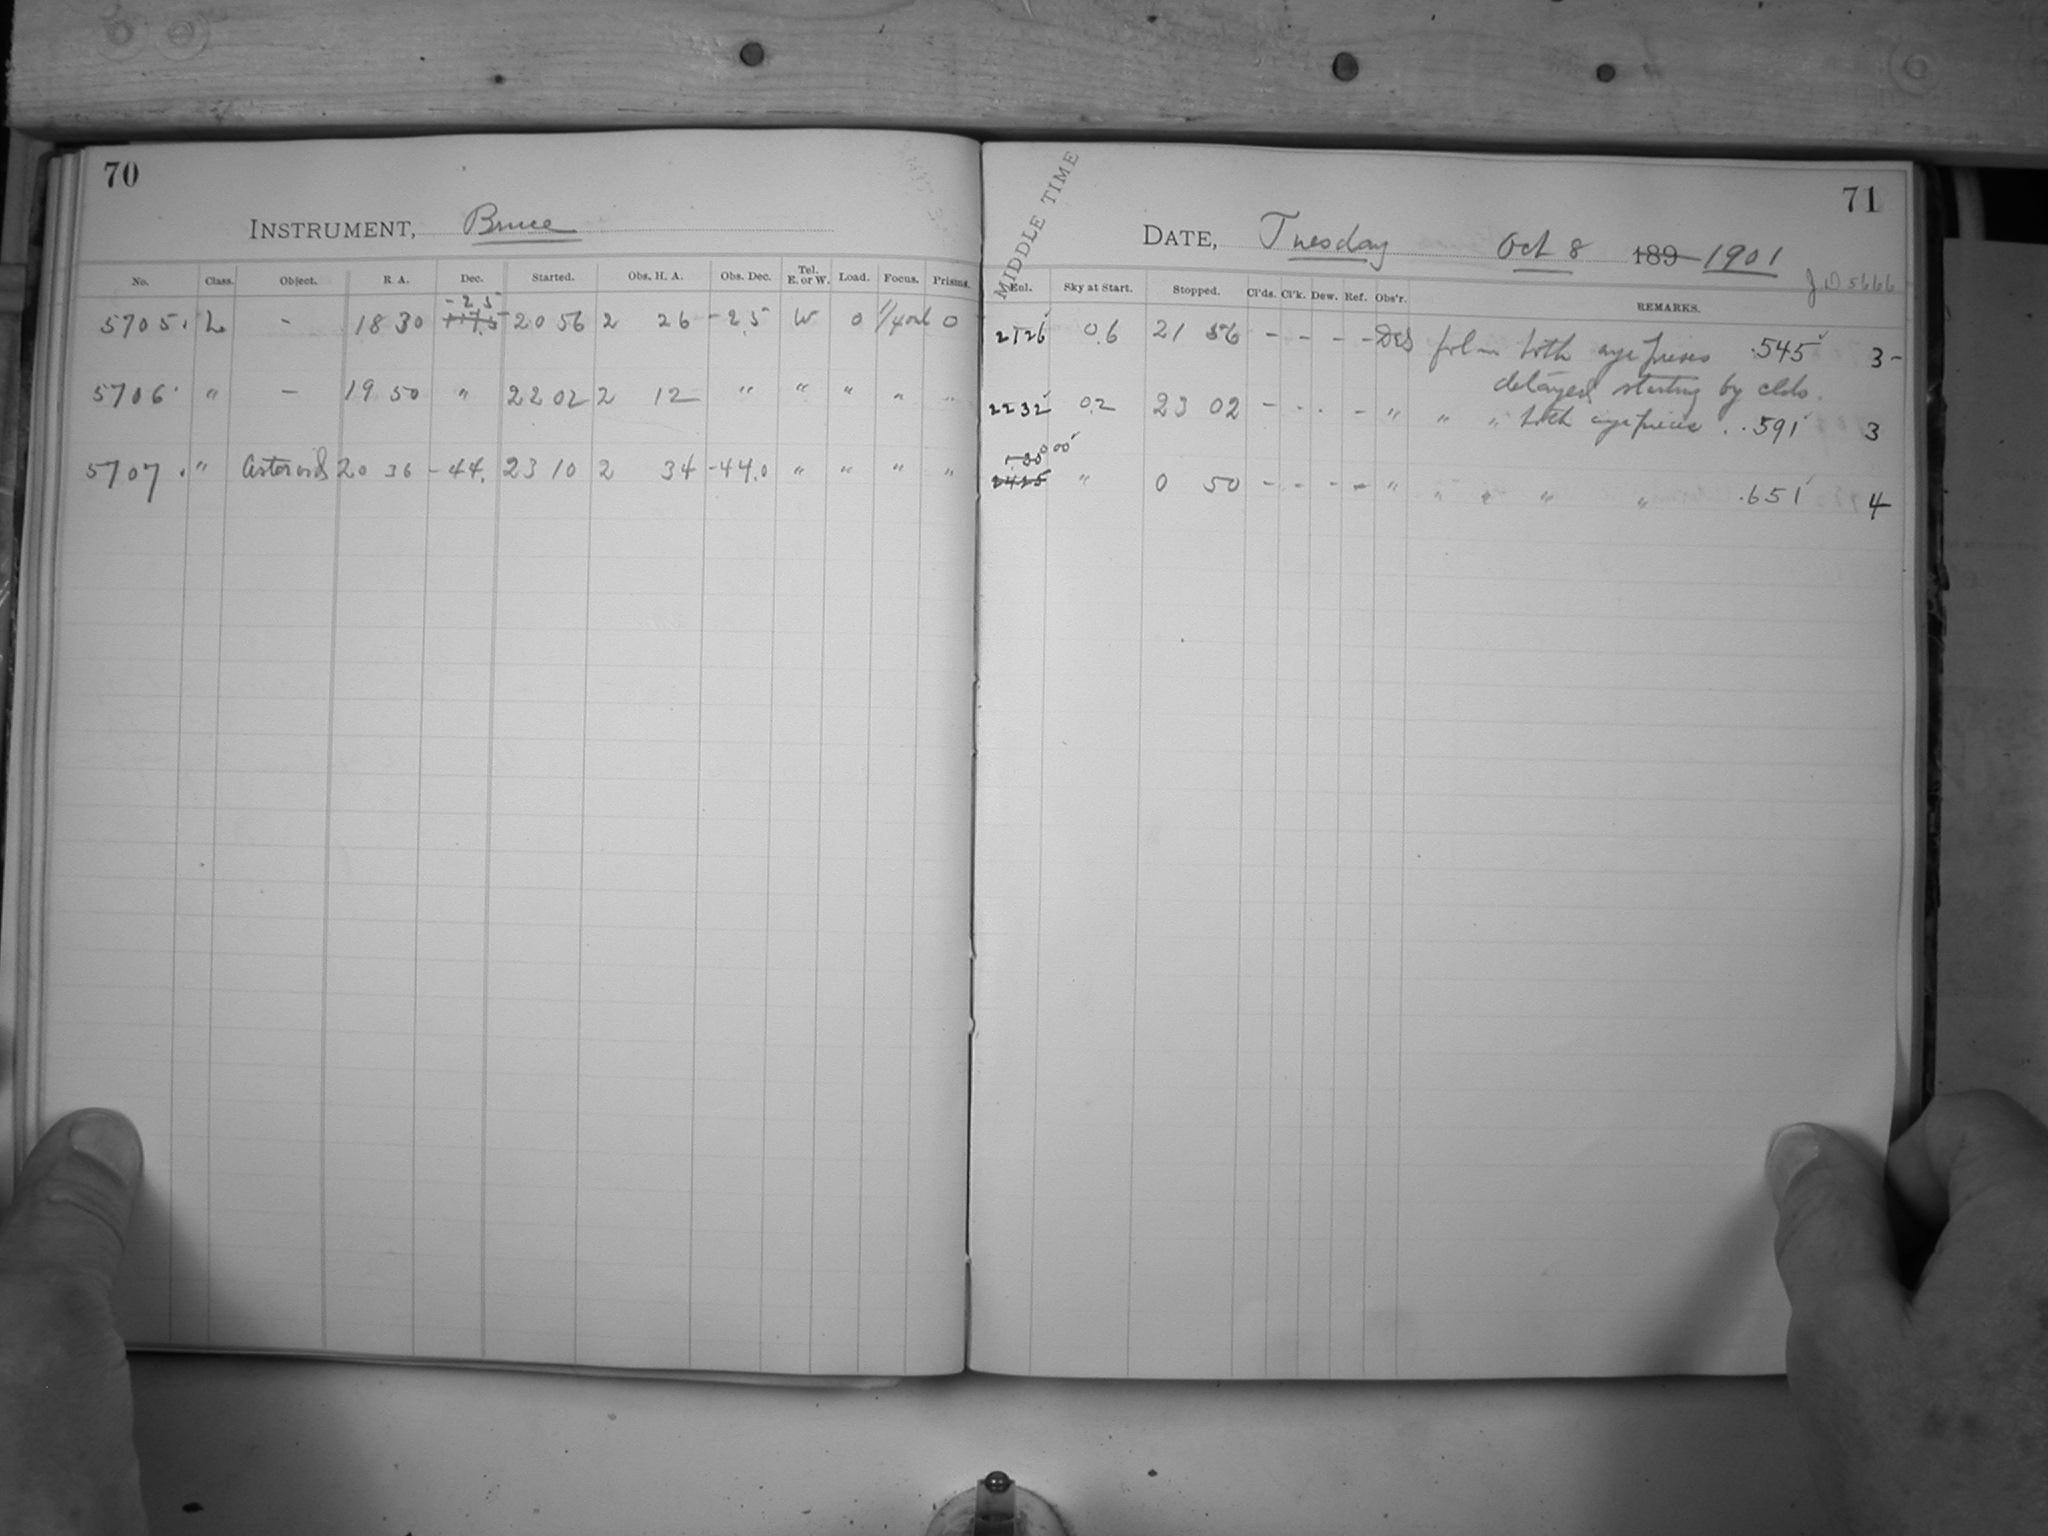 70
INSTRUMENT, Bruce
No. Class. Object. R. A. Dec. Started. Obs. H. A. Obs. Dec. Tel. E. or W. Load. Focus. Prisms.
5705. L - 18 30 -25 20 56 2 26 -25 W 0 0
5706. " - 19 50 " 22 02 2 12 " " " " "
5707. " Asteroid 20 36 -44. 23 10 2 34 -44.0 " " " "
71
MIDDLE TIME
DATE, Tuesday Oct 8 189 1901
J D 5666
Enl. Sky at Start. Stopped. Cl'ds. Cl'k. Dew. Ref. Obs'r. REMARKS.
2126 0.6 21 56 - - - - both eye pieces .545 3-
delayed starting by clds.
2232 0.2 23 02 - - - - " " " both eye pieces .591 3
2425 " 0 50 - - - - " " " " " .651 4